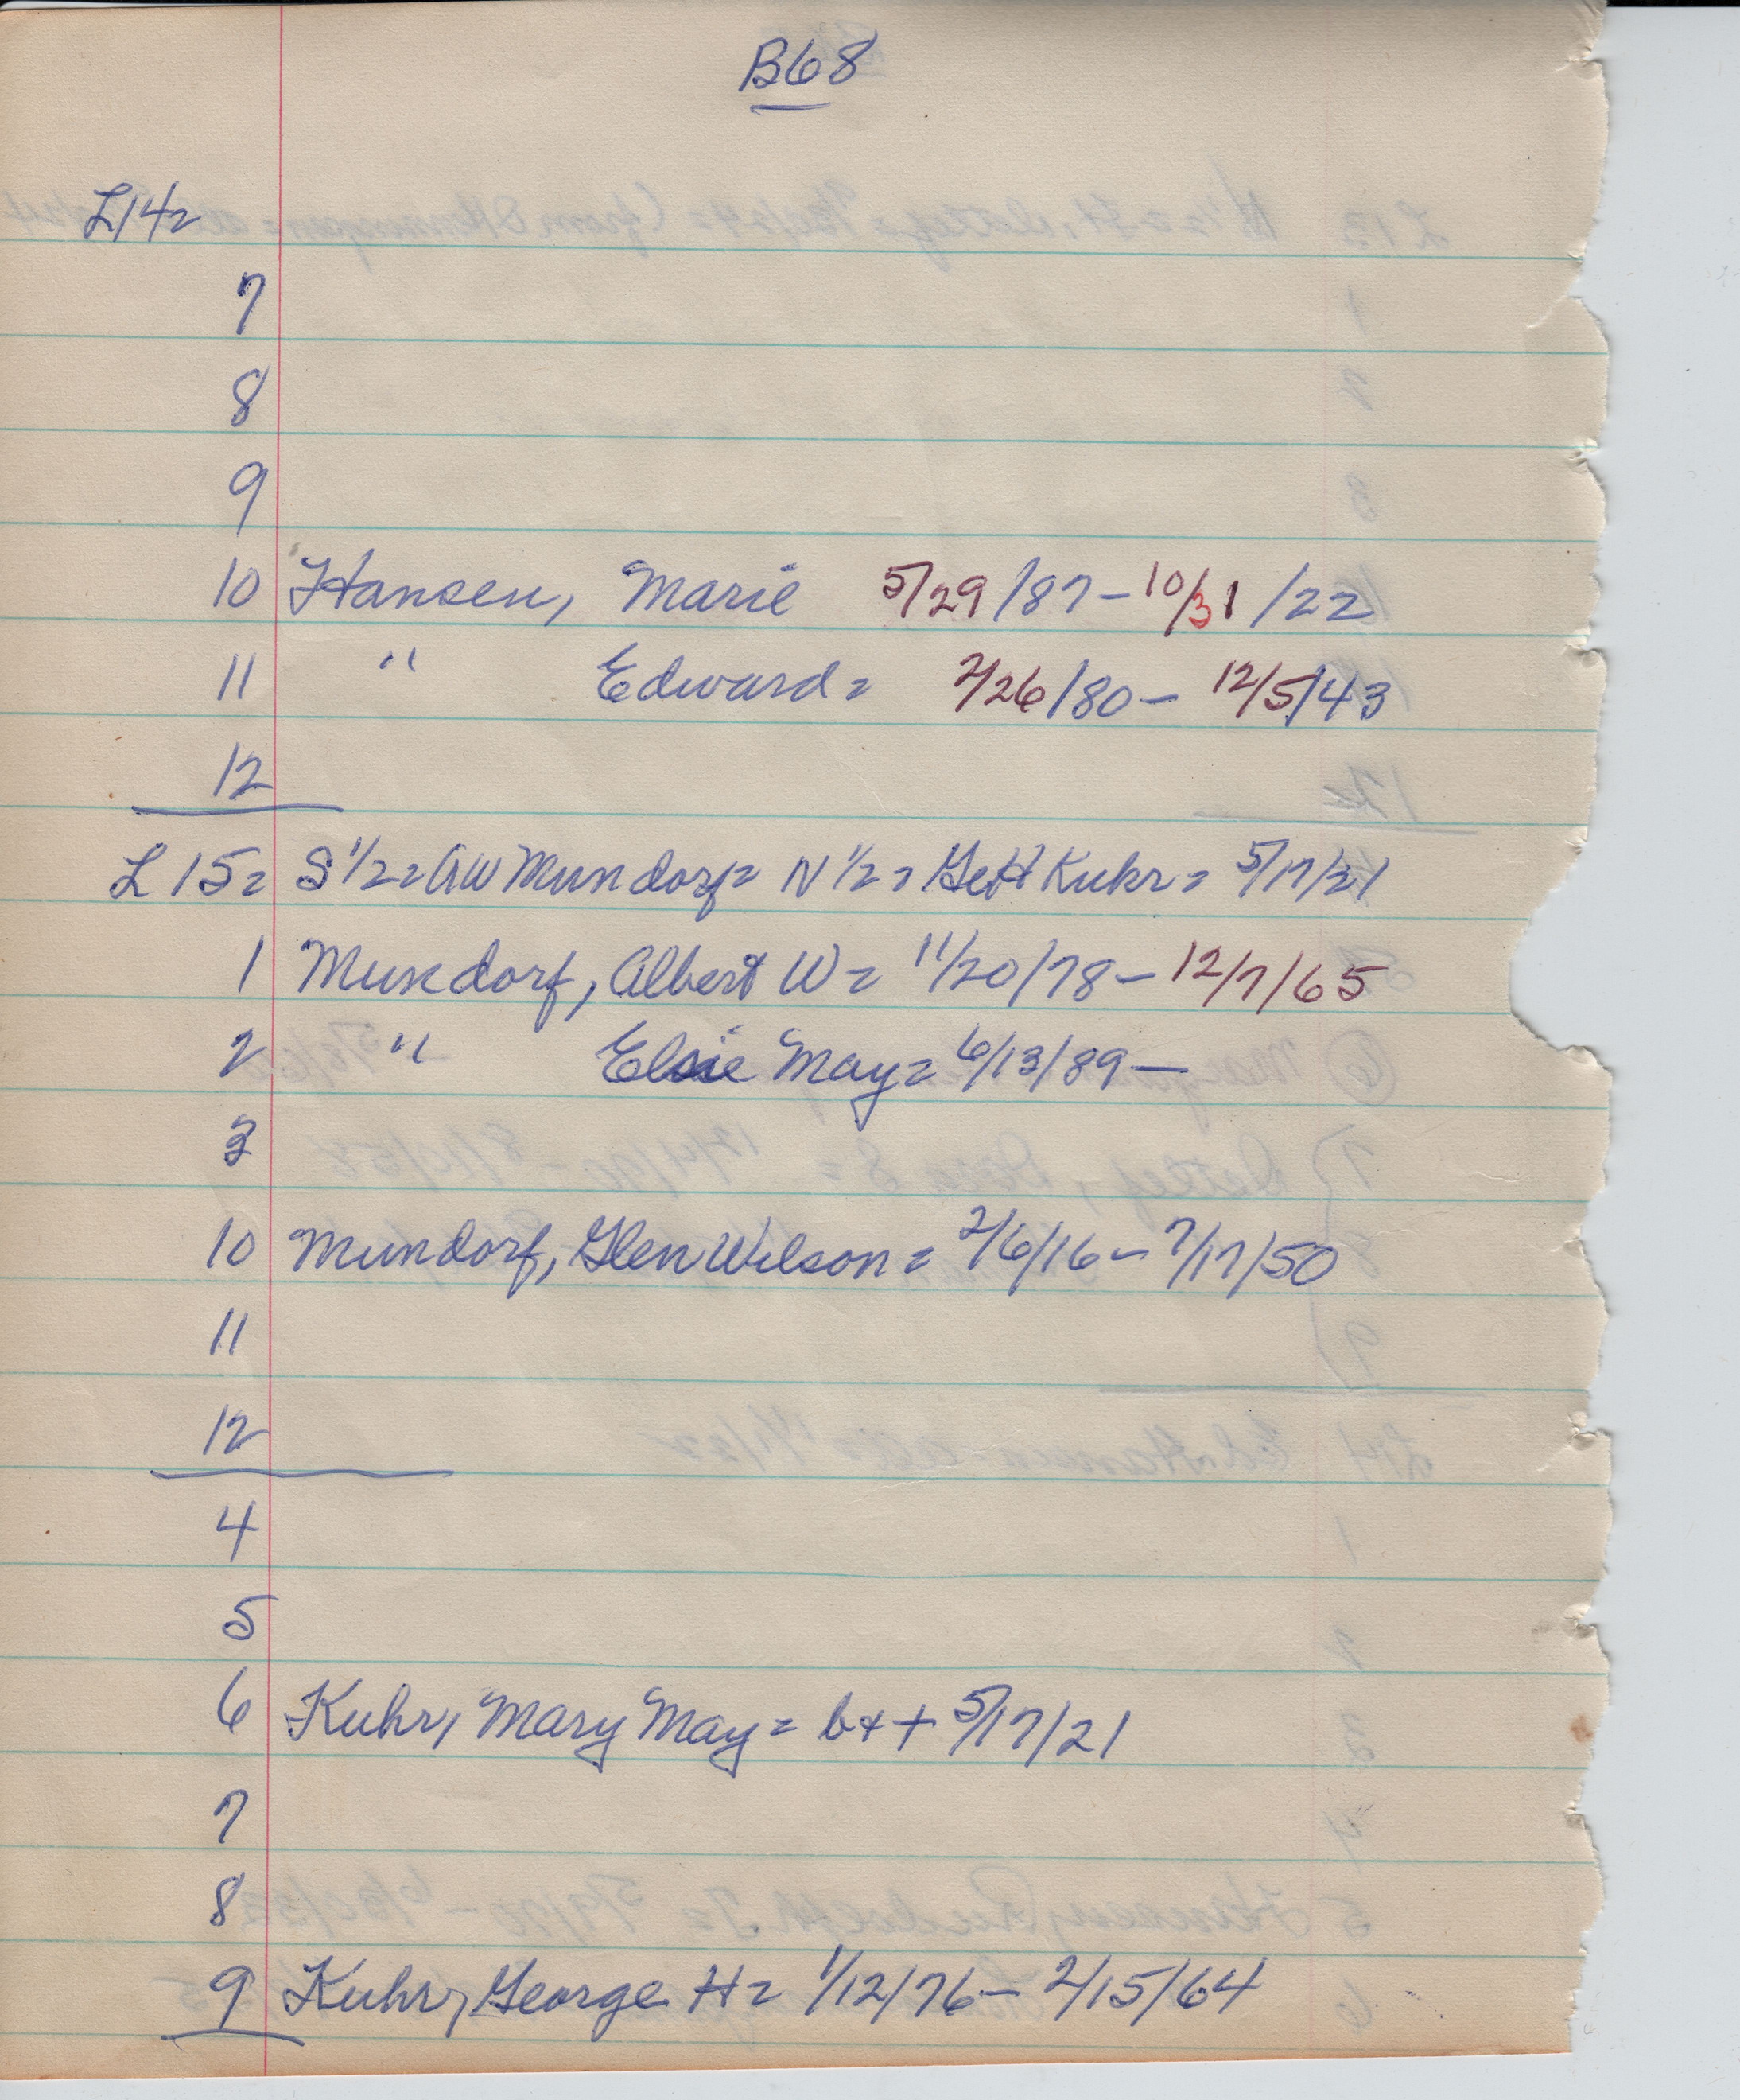 B68
L14=
7
8
9
10 Hansen, Marie 5/29/87 - 10/31/22
11 " Edward = 2/26/80 - 12/5/43
12
L15= S 1/2 = AW Mundorf = N 1/2 = Geo H Kuhr = 5/17/21
1 Mundorf, Albert W = 11/20/78 - 12/7/65
2 " Elsie May = 6/13/89 -
3
10 Mundorf, Glen Wilson = 2/6/16 - 7/17/50
11
12
4
5
6 Kuhr, Mary May = b + + 5/17/21
7
8
9 Kuhr, George H = 1/12/76 - 2/15/64